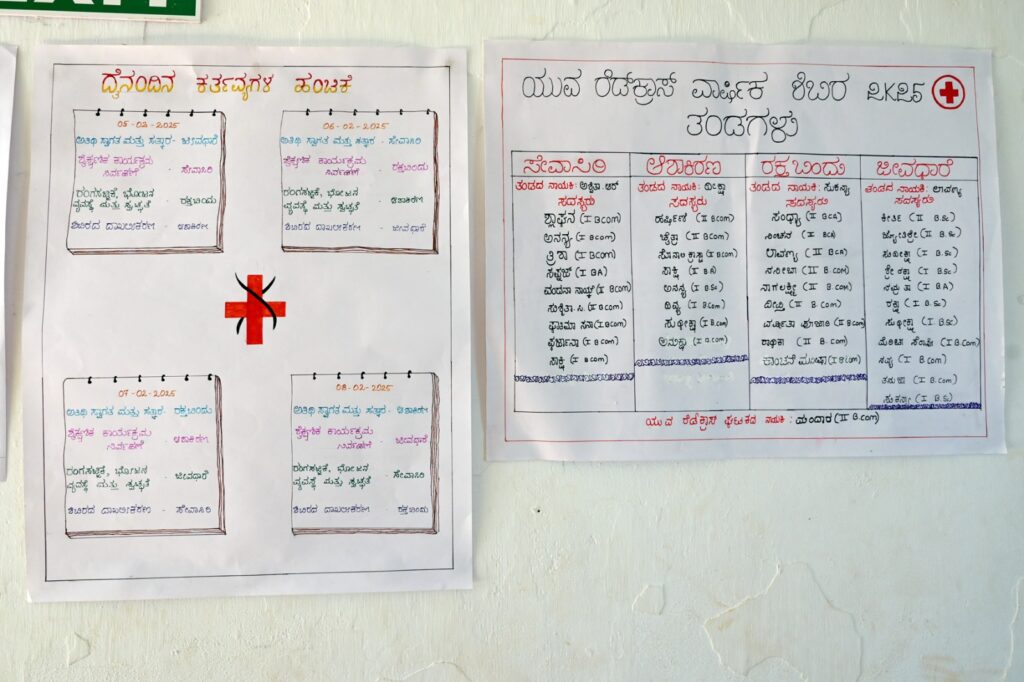 ದೈನಂದಿನ ಕರ್ತವ್ಯಗಳ ಹಂಚಿಕೆ
05-02-2025
ಅತಿಥಿ ಸ್ವಾಗತ ಮತ್ತು ಸತ್ಕಾರ - ಜೀವಧಾರೆ
ಶೈಕ್ಷಣಿಕ ಕಾರ್ಯಕ್ರಮ
ನಿರ್ವಹಣೆ - ಸೇವಾಸಿರಿ
ರಂಗಸಜ್ಜಿಕೆ, ಭೋಜನ
ವ್ಯವಸ್ಥೆ ಮತ್ತು ಸ್ವಚ್ಛತೆ - ರಕ್ತಬಂದು
ಶಿಬಿರದ ದಾಖಲೀಕರಣ - ಆಶಾಕಿರಣ
06-02-2025
ಅತಿಥಿ ಸ್ವಾಗತ ಮತ್ತು ಸತ್ಕಾರ - ಸೇವಾಸಿರಿ
ಶೈಕ್ಷಣಿಕ ಕಾರ್ಯಕ್ರಮ
ನಿರ್ವಹಣೆ - ರಕ್ತಬಂದು
ರಂಗಸಜ್ಜಿಕೆ, ಭೋಜನ
ವ್ಯವಸ್ಥೆ ಮತ್ತು ಸ್ವಚ್ಛತೆ - ಆಶಾಕಿರಣ
ಶಿಬಿರದ ದಾಖಲೀಕರಣ - ಜೀವಧಾರೆ
07-02-2025
ಅತಿಥಿ ಸ್ವಾಗತ ಮತ್ತು ಸತ್ಕಾರ - ರಕ್ತಬಂದು
ಶೈಕ್ಷಣಿಕ ಕಾರ್ಯಕ್ರಮ
ನಿರ್ವಹಣೆ - ಆಶಾಕಿರಣ
ರಂಗಸಜ್ಜಿಕೆ, ಭೋಜನ
ವ್ಯವಸ್ಥೆ ಮತ್ತು ಸ್ವಚ್ಛತೆ - ಜೀವಧಾರೆ
ಶಿಬಿರದ ದಾಖಲೀಕರಣ - ಸೇವಾಸಿರಿ
08-02-2025
ಅತಿಥಿ ಸ್ವಾಗತ ಮತ್ತು ಸತ್ಕಾರ - ಆಶಾಕಿರಣ
ಶೈಕ್ಷಣಿಕ ಕಾರ್ಯಕ್ರಮ
ನಿರ್ವಹಣೆ - ಜೀವಧಾರೆ
ರಂಗಸಜ್ಜಿಕೆ, ಭೋಜನ
ವ್ಯವಸ್ಥೆ ಮತ್ತು ಸ್ವಚ್ಛತೆ - ಸೇವಾಸಿರಿ
ಶಿಬಿರದ ದಾಖಲೀಕರಣ - ರಕ್ತಬಂದು
ಯುವ ರೆಡ್‌ಕ್ರಾಸ್ ವಾರ್ಷಿಕ ಶಿಬಿರ 2K25
ತಂಡಗಳು
ಸೇವಾಸಿರಿ
ತಂಡದ ನಾಯಕಿ: ಅಶ್ವಿತಾ.ಆರ್
ಸದಸ್ಯರು
ಶ್ಲಾಘನ (I BCom)
ಅನನ್ಯ (I BCom)
ತ್ರಿಶಾ (I BCom)
(I BA)
ವಂದನಾ ನಾಯ್ಕ್ (I B.Com)
ಸುಶ್ಮಿತಾ.ಸಿ. (I B.Com)
ಫಾತಿಮಾ ಸನಾ (I B.Com)
ಫರ್ಜಾನಾ (I B.Com)
ಸಾಕ್ಷಿ (I B.Com)
ಆಶಾಕಿರಣ
ತಂಡದ ನಾಯಕಿ: ದೀಕ್ಷಾ
ಸದಸ್ಯರು
ಹರ್ಷಿಣಿ (II B.Com)
ಚೈತ್ರಾ (II B.Com)
ಸೋನಾಲಿ ಕ್ರಾಸ್ತಾ (I B.Com)
ಸಾಕ್ಷಿ (I B.A)
ಅನನ್ಯ (I B.Sc)
ದಿವ್ಯ (I B.Com)
ಸುಥೀಕ್ಷಾ (I B.Com)
ಅನುಷಾ (I B.Com)
ರಕ್ತಬಂದು
ತಂಡದ ನಾಯಕಿ: ಸುಕನ್ಯಾ
ಸದಸ್ಯರು
ಸಂಧ್ಯಾ (II BCA)
ಸಿಂಚನ (II BCA)
ಲಾವಣ್ಯ (II BCA)
(II B.COM)
ನಾಗಲಕ್ಷ್ಮೀ (II B.COM)
ದೀಪ್ತಿ (II B.COM)
ವರ್ಷಿತಾ ಪೂಜಾರಿ (II B.COM)
ರಾಧಿಕಾ (II B.COM)
(I B.COM)
ಜೀವಧಾರೆ
ತಂಡದ ನಾಯಕಿ: ಲಾವಣ್ಯ
ಸದಸ್ಯರು
ಕೀರ್ತಿ (II B.Sc)
ಜ್ಯೋತಿಶ್ರೀ (II B.Sc)
ಸುದೀಕ್ಷಾ (I B.Sc)
ಶ್ರೀರಕ್ಷಾ (I B.Sc)
ನಮೃತಾ (I B.A)
ರಕ್ಷಾ (I B.Sc)
ಸುಥೀಕ್ಷಾ (I B.Sc)
(I B.Com)
ನವ್ಯ (I B.Com)
ತನುಜಾ (I B.Com)
ಸುಕನ್ಯಾ (I B.Sc)
ಯುವ ರೆಡ್‌ಕ್ರಾಸ್ ಘಟಕದ ನಾಯಕಿ: ಮಂದಾರ (II B.Com)